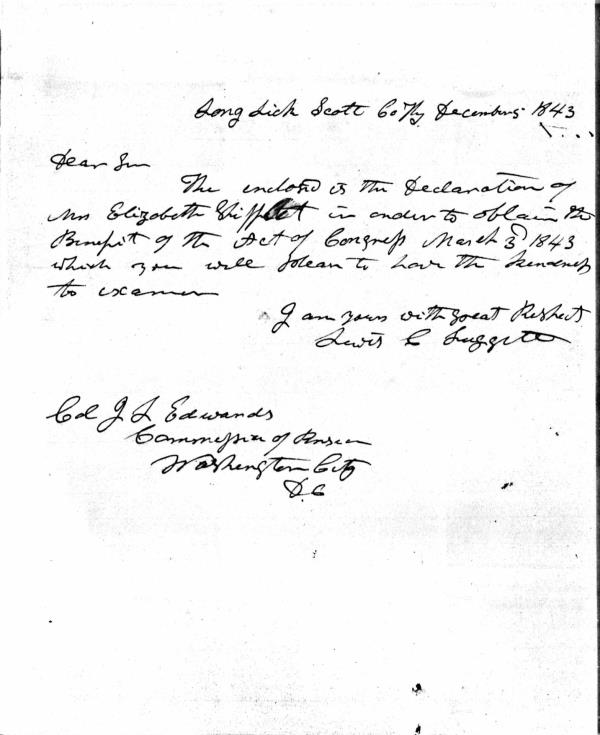 Long Lick Scott Co Ky December 1843
Dear Sir
The enclosd is the Declaration of
Mrs Elizabeth in order to obtain the
Benefit of the Act of Congress March 3d 1843
which you will please to have the kindness
to examin
I am yours with great Respects
Lewis C Suggett
Col J L Edwards
Commissior of Pension
Washington City
D.C